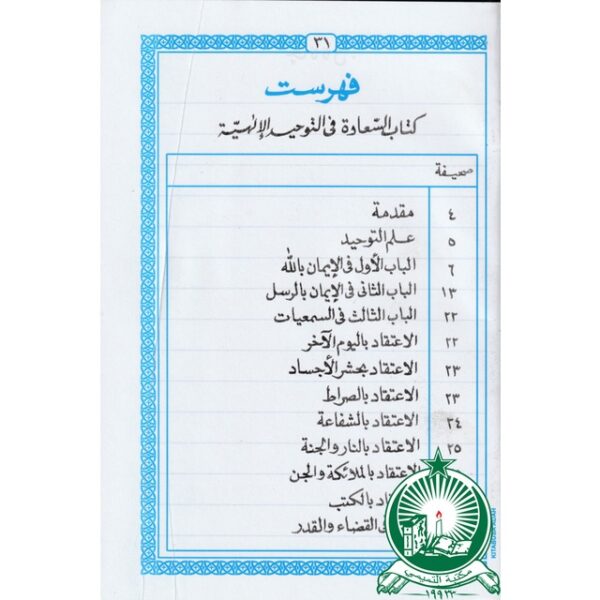 ٣١
فهرست
كتاب السعادة في التوحيد الإلهية
صحيفة
٤ مقدمة
٥ علم التوحيد
٦ الباب الأول في الإيمان بالله
١٣ الباب الثاني في الإيمان بالرسل
٢٢ الباب الثالث في السمعيات
٢٢ الاعتقاد باليوم الآخر
٢٣ الاعتقاد بحشر الأجساد
٢٣ الاعتقاد بالصراط
٢٤ الاعتقاد بالشفاعة
٢٥ الاعتقاد بالنار والجنة
بالملائكة والجن
بالكتب
القضاء والقدر
مكتبة